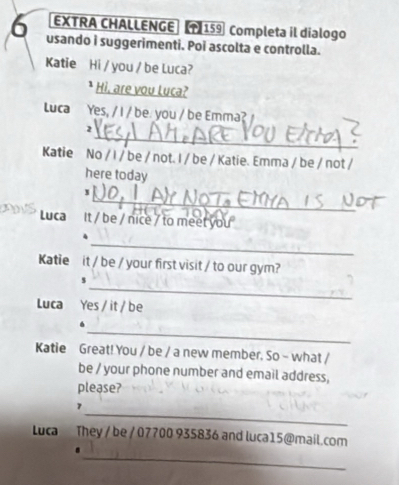 6 EXTRA CHALLENGE 159 Completa il dialogo
usando i suggerimenti. Poi ascolta e controlla.
Katie Hi / you / be Luca?
1 Hi, are you Luca?
Luca Yes, / I / be. you / be Emma?
2 YES, I AM. ARE YOU EMMA?
Katie No / I / be / not. I / be / Katie. Emma / be / not /
here today
3 NO, I AM NOT. EMMA IS NOT
HERE TODAY
Luca It / be / nice / to meet you
4
Katie it / be / your first visit / to our gym?
5
Luca Yes / it / be
6
Katie Great! You / be / a new member. So – what /
be / your phone number and email address,
please?
7
Luca They / be / 07700 935836 and luca15@mail.com
8